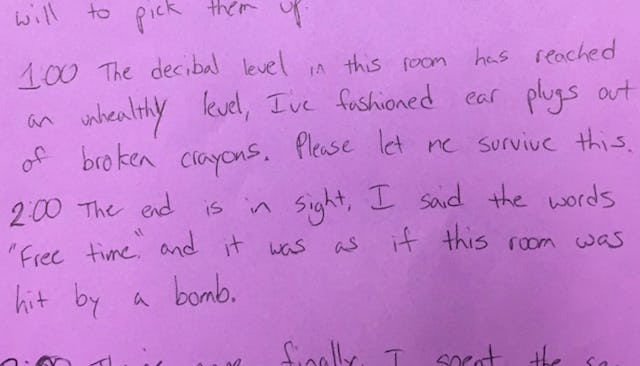 will to pick them up.
1:00 The decibal level in this room has reached
an unhealthy level, I've fashioned ear plugs out
of broken crayons. Please let me survive this.
2:00 The end is in sight, I said the words
"Free time." and it was as if this room was
hit by a bomb.
finally. I spent the